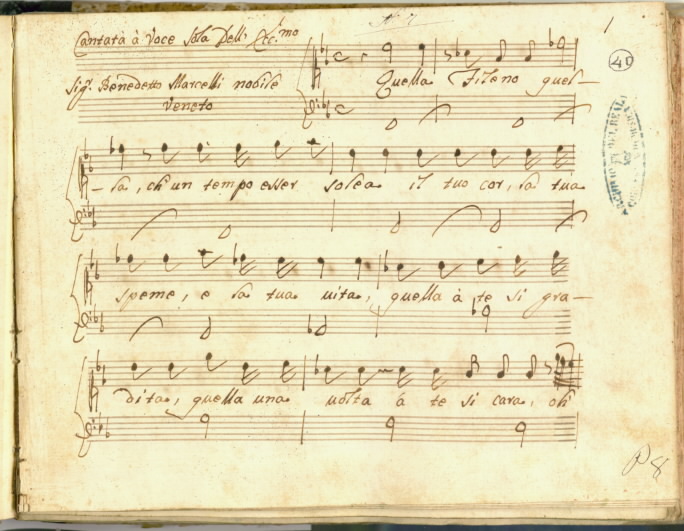 N. 7
1
Cantata à Voce Sola Dell' Ecc.mo
40
Sig.r Benedetto Marcelli nobile
Veneto
Quella Fileno quel-
-la, ch'un tempo esser solea il tuo cor, la tua
speme, e la tua uita, quella à te si gra-
dita, quella una uolta à te si cara, oh
P 8